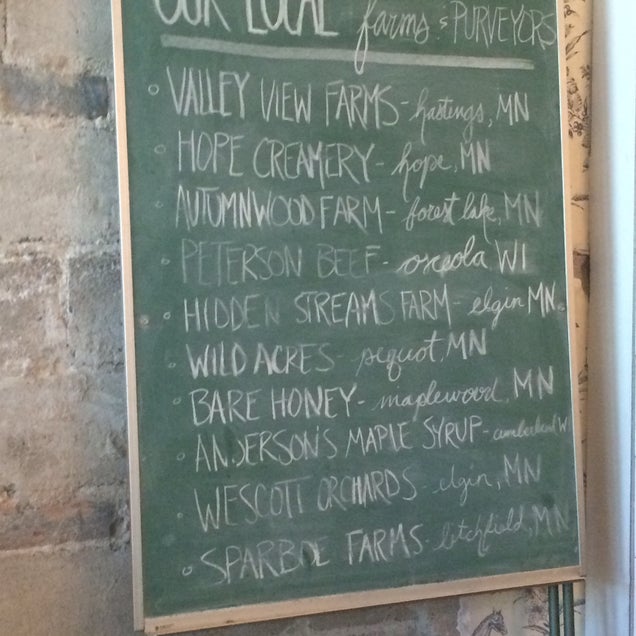 OUR LOCAL farms & PURVEYORS
VALLEY VIEW FARMS - hastings, MN
HOPE CREAMERY - hope, MN
AUTUMNWOOD FARM - forest lake, MN
PETERSON BEEF - osceola WI
HIDDEN STREAMS FARM - elgin MN
WILD ACRES - pequot, MN
BARE HONEY - maplewood, MN
ANDERSON'S MAPLE SYRUP - cumberland W
WESCOTT ORCHARDS - elgin, MN
SPARBOE FARMS - litchfield, MN